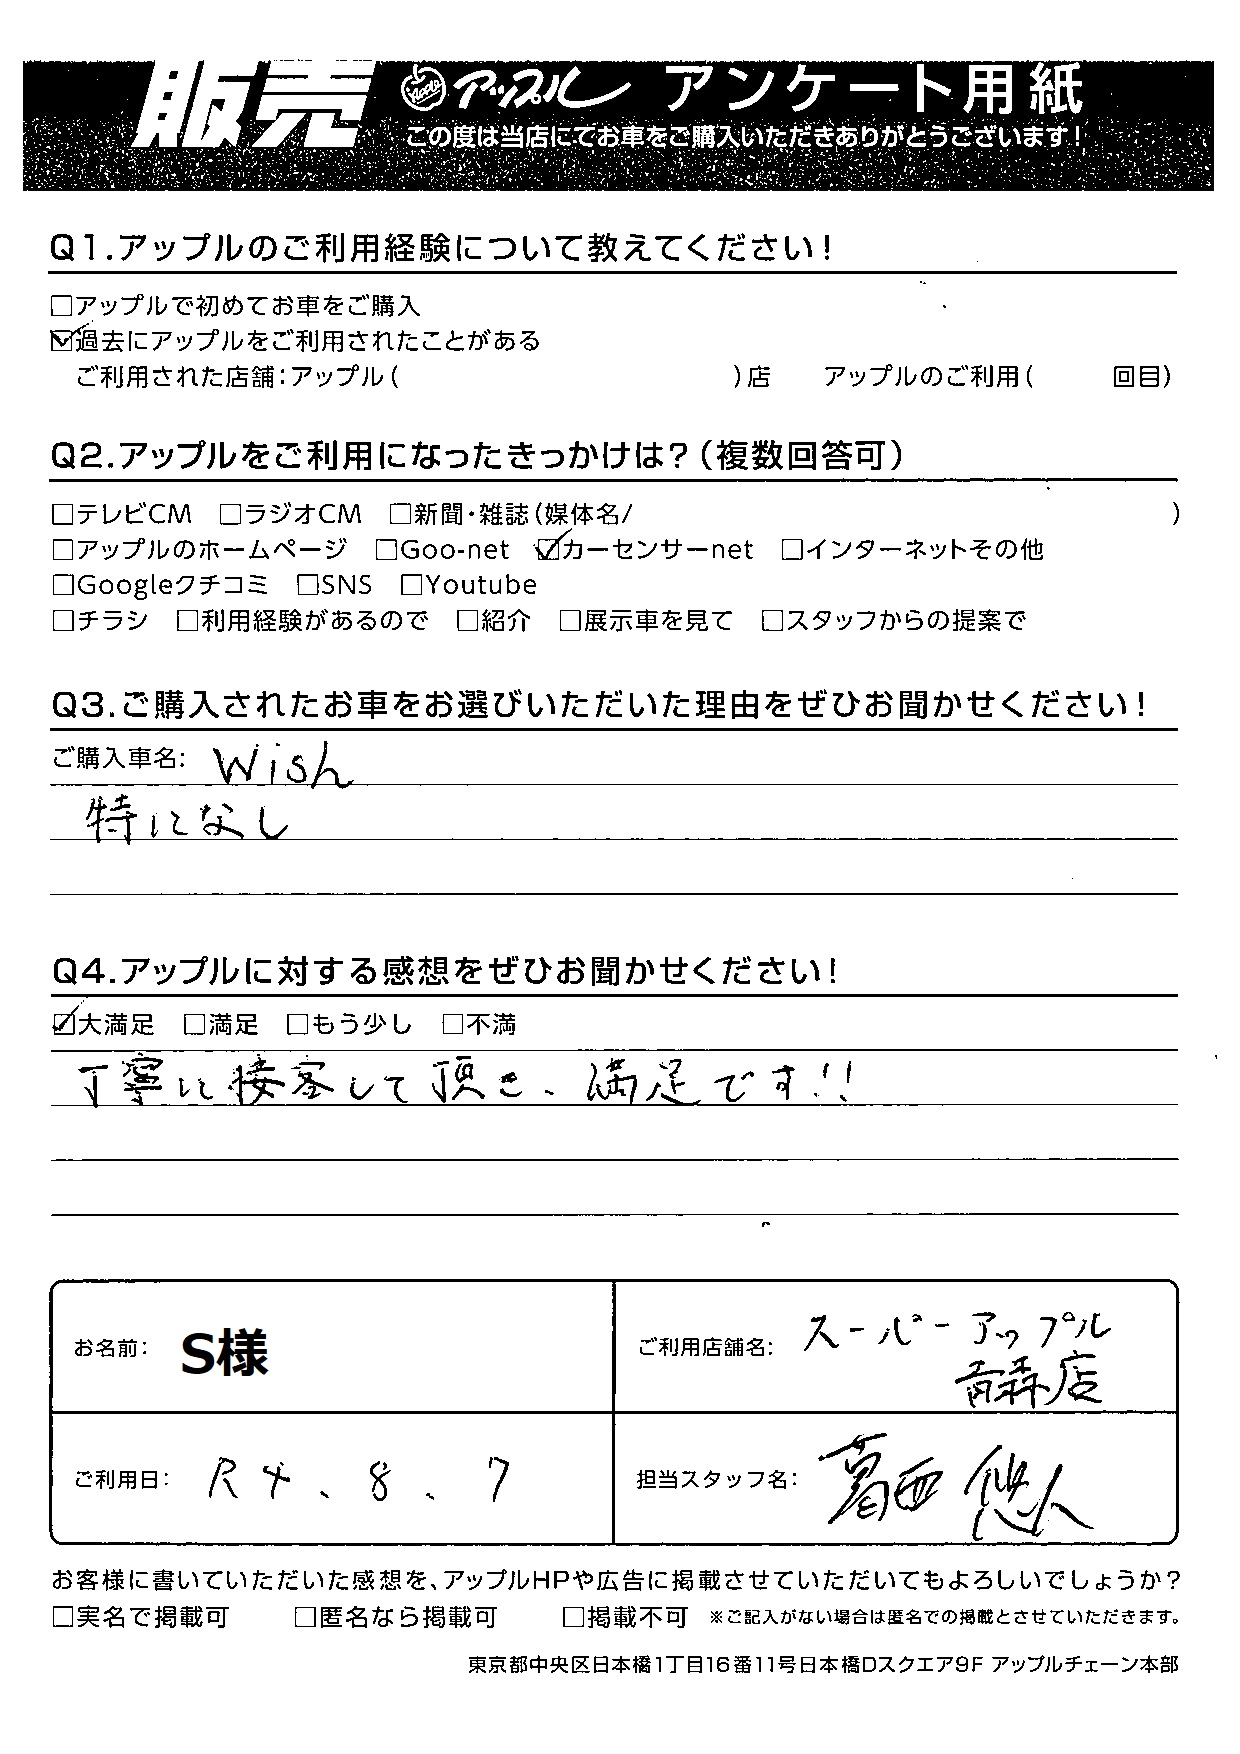 販売 Apple アップル アンケート用紙
この度は当店にてお車をご購入いただきありがとうございます！
Q1.アップルのご利用経験について教えてください！
□アップルで初めてお車をご購入
☑過去にアップルをご利用されたことがある
ご利用された店舗：アップル（　）店　アップルのご利用（　回目）
Q2.アップルをご利用になったきっかけは？（複数回答可）
□テレビCM　□ラジオCM　□新聞・雑誌（媒体名/　）
□アップルのホームページ　□Goo-net　☑カーセンサーnet　□インターネットその他
□Googleクチコミ　□SNS　□Youtube
□チラシ　□利用経験があるので　□紹介　□展示車を見て　□スタッフからの提案で
Q3.ご購入されたお車をお選びいただいた理由をぜひお聞かせください！
ご購入車名：Wish
特になし
Q4.アップルに対する感想をぜひお聞かせください！
☑大満足　□満足　□もう少し　□不満
丁寧に接客して頂き、満足です!!
お名前：S様
ご利用店舗名：スーパーアップル
青森店
ご利用日：R4、8、7
担当スタッフ名：葛西 悠人
お客様に書いていただいた感想を、アップルHPや広告に掲載させていただいてもよろしいでしょうか？
□実名で掲載可　□匿名なら掲載可　□掲載不可　※ご記入がない場合は匿名での掲載とさせていただきます。
東京都中央区日本橋1丁目16番11号日本橋Dスクエア9F アップルチェーン本部